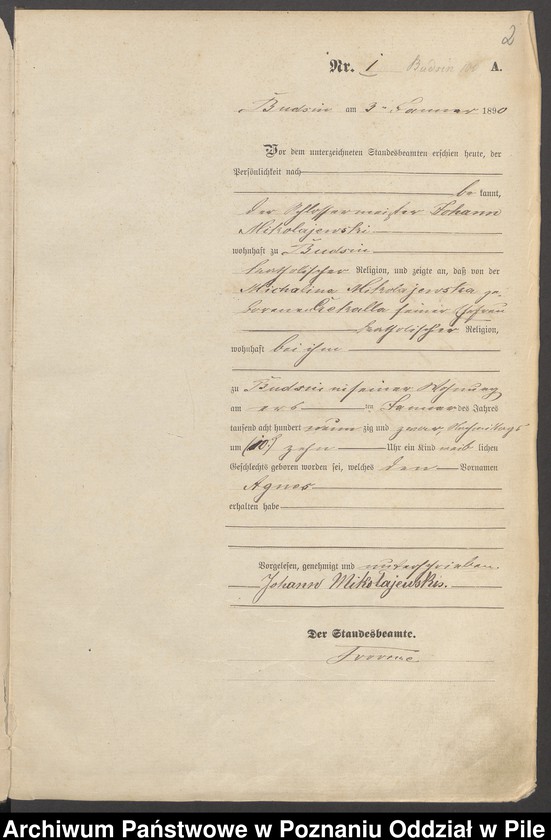 2
Nr. 1 Budsin A.
Budsin am 3ten Januar 1890
Vor dem unterzeichneten Standesbeamten erschien heute, der
Persönlichkeit nach
be kannt,
der Schlossermeister Johann
Mikolajewski
wohnhaft zu Budsin
katholischer Religion, und zeigte an, daß von der
Michalina Mikolajewska ge-
borene seiner Ehefrau
katholischer Religion,
wohnhaft bei ihm
zu Budsin in seiner Wohnung
am im Januar des Jahres
tausend acht hundert neun zig und zwar Nachmittags
um (10) zehn Uhr ein Kind weib lichen
Geschlechts geboren worden sei, welches den Vornamen
Agnes
erhalten habe
Vorgelesen, genehmigt und unterschrieben
Johann Mikołajewski.
Der Standesbeamte.
Archiwum Państwowe w Poznaniu Oddział w Pile